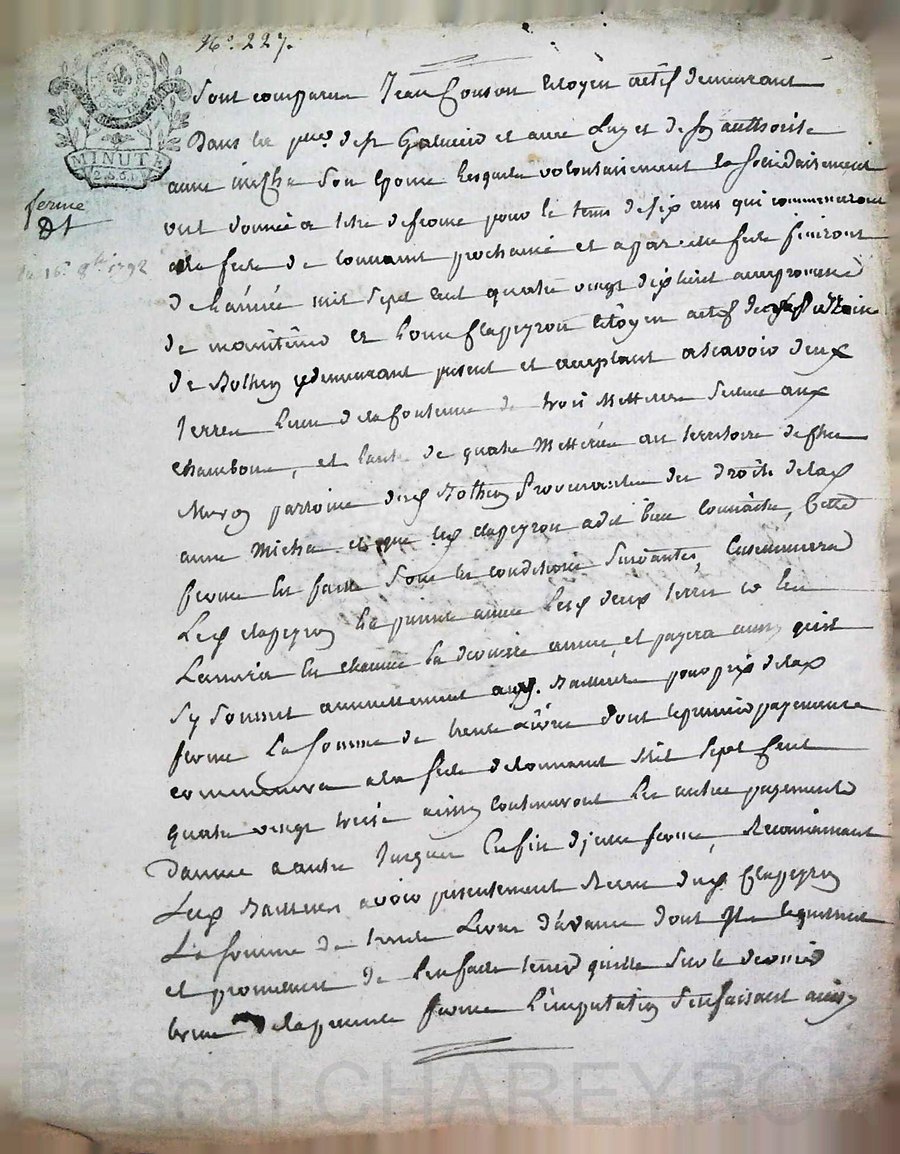 N.° 227.
MINUTE
2. S. 6 D.
ferme
du 16.e 8bre 1792
Sont comparu Jean Couson Citoyen actif demeurant
Dans la de St Galmier et avec luy et de son authorité
anne micha son Epouse lesquels volontairement et solidairement
ont donnée a titre de ferme pour le tems de six ans qui commenceront
a la fete de toussaint prochaine et a pareille fete finiront
de l'année mil sept cent quatre vingt dix huit avec promesse
de maintenir et Clapeyron Citoyen actif de
de Bothéon y demeurant present et acceptant a scavoir deux
Terres l'une de la contenue de trois Metterées scituee aux
chambons, et l'autre de quatre Metterées au territoire de
parroisse dud Bothéon Provenantes des droits de lad
anne Micha et que led clapeyron a dit bien connaitre, Cette
ferme est faite sous les conditions suivantes, Ensemencera
Led clapeyron la premiere année lesd deux terres et les
Laissera en chaume la derniere année, et payera ainsy qu'il
s'y soumet annuellement auxd. Bailleurs pour prix de lad
ferme La somme de trente Livres dont le premier payement
commencera a la fete de toussaint Mil sept Cent
quatre vingt treize ainsy continueront les autres payements
D'année a autre Jusques En fin dycelle ferme, Reconnaissant
Lesd Bailleurs avoir presentement Receu dud Clapeyron
La somme de trente Livres d'avance dont Ils le quittent
et promettent de l'en faire tenir quitte sur le dernier
terme de la presente ferme L'imputation s'en faisant ainsy
Pascal CHAREYRON